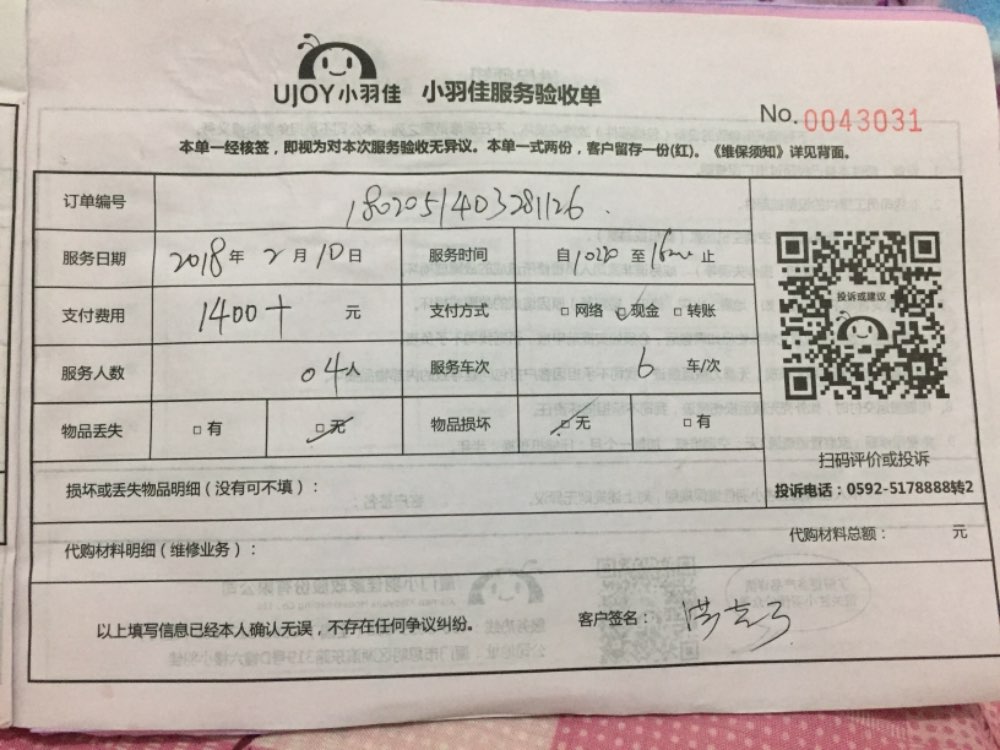 UJOY小羽佳 小羽佳服务验收单
No. 0043031
本单一经核签，即视为对本次服务验收无异议。本单一式两份，客户留存一份(红)。《维保须知》详见背面。
订单编号 1802051403281126
服务日期 2018年2月10日 服务时间 自10:20至 止
投诉或建议
支付费用 1400+ 元 支付方式 □网络 □现金 □转账
服务人数 04人 服务车次 6 车/次
物品丢失 □有 □无 物品损坏 □无 □有
扫码评价或投诉
损坏或丢失物品明细（没有可不填）：
投诉电话：0592-5178888转2
代购材料明细（维修业务）： 代购材料总额： 元
以上填写信息已经本人确认无误，不存在任何争议纠纷。 客户签名：